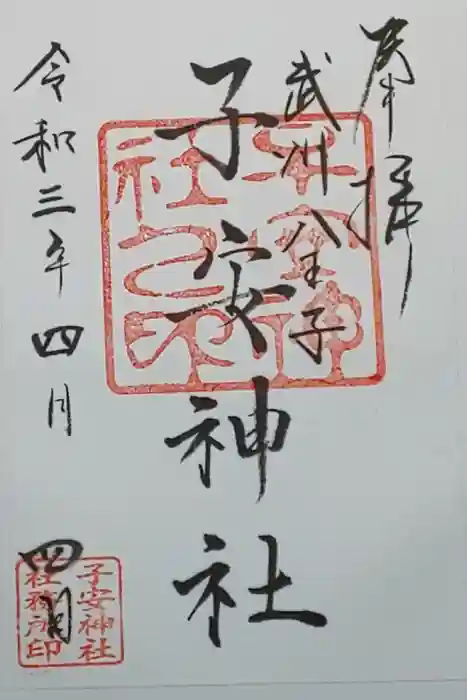 奉拝
武州八王子
子安神社
令和三年四月
四日
子安神社
社務所印